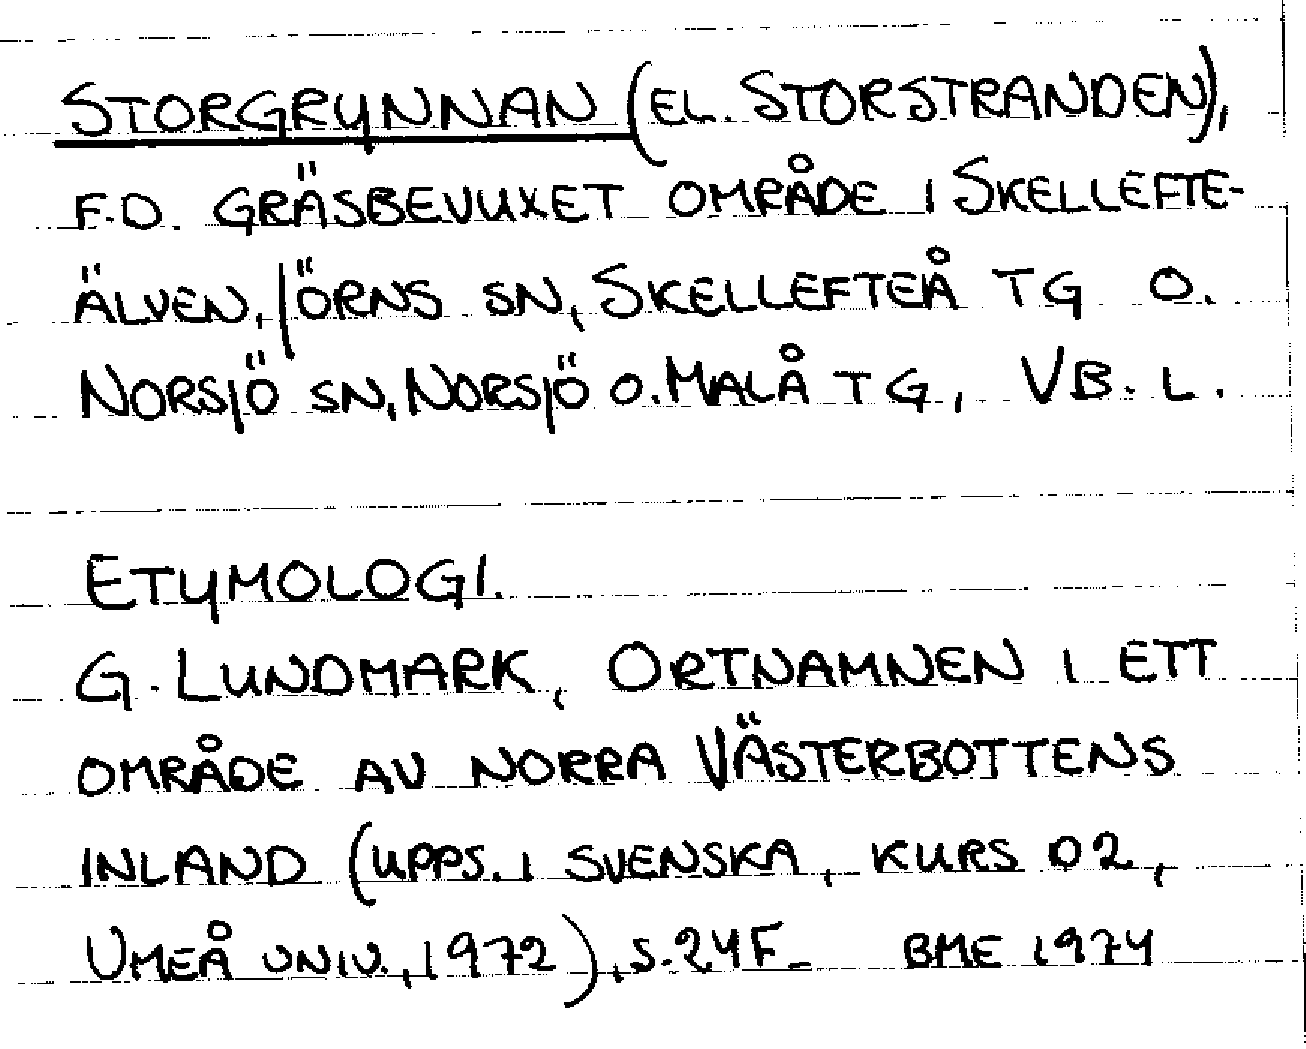 STORGRYNNAN (EL. STORSTRANDEN),
F.D. GRÄSBEVUXET OMRÅDE I SKELLEFTE-
ÄLVEN, JÖRNS SN, SKELLEFTEÅ TG O.
NORSJÖ SN, NORSJÖ O. MALÅ TG, VB. L.
ETYMOLOGI.
G. LUNDMARK, ORTNAMNEN I ETT
OMRÅDE AV NORRA VÄSTERBOTTENS
INLAND (UPPS. I SVENSKA, KURS D2,
UMEÅ UNIV., 1972), S. 24F. BME 1974